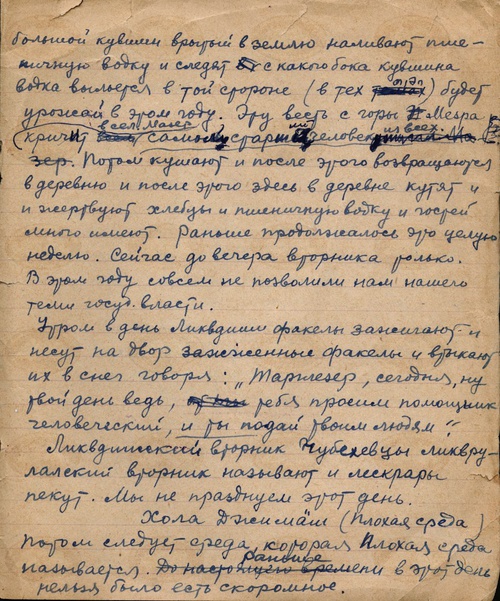 большой кувшин врытый в землю наливают пше-
ничную водку и следят с какого бока кувшина
водка выльется в той стороне (в тех отдал) будет
урожай в этом году. Эту весть с горы Мезра
кричит всем Мазер самый старший человек из всех.
зер. Потом кушают и после этого возвращаются
в деревню и после этого здесь в деревне кутят и
и жертвуют хлебцы и пшеничную водку и гостей
много имеют. Раньше продолжалось это целую
неделю. Сейчас до вечера вторника только.
В этом году совсем не позволили нам нашего
теми госуд. власти.
Утром в день Ликвдиши факелы зажигают и
несут на двор зажженные факелы и втыкают
их в снег говоря: „Тарглезер, сегодня, ну
твой день ведь, тебя просим помощник
человеческий, и ты подай твоим людям"
Ликвдишский вторник Чубехевцы ликвру-
лалский вторник называют и лескрары
пекут. Мы не празднуем этот день.
Хола Джимäш (Плохая среда)
Потом следует среда, которая Плохая среда
называется. Раньше в этот день
нельзя было есть скоромное.